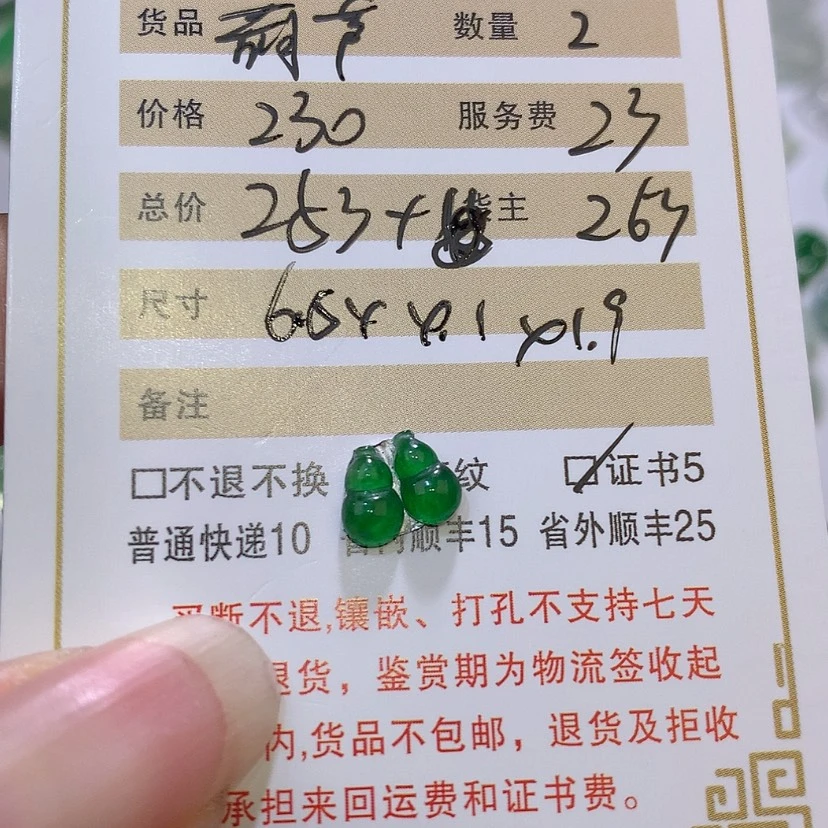 货品 葫芦 数量 2
价格 230 服务费 23
总价 253+ 货主 263
尺寸 6.5×4.1×1.9
备注
□不退不换 纹 □证书5
普通快递10 省内顺丰15 省外顺丰25
买断不退,镶嵌、打孔不支持七天
退货，鉴赏期为物流签收起
内,货品不包邮，退货及拒收
承担来回运费和证书费。